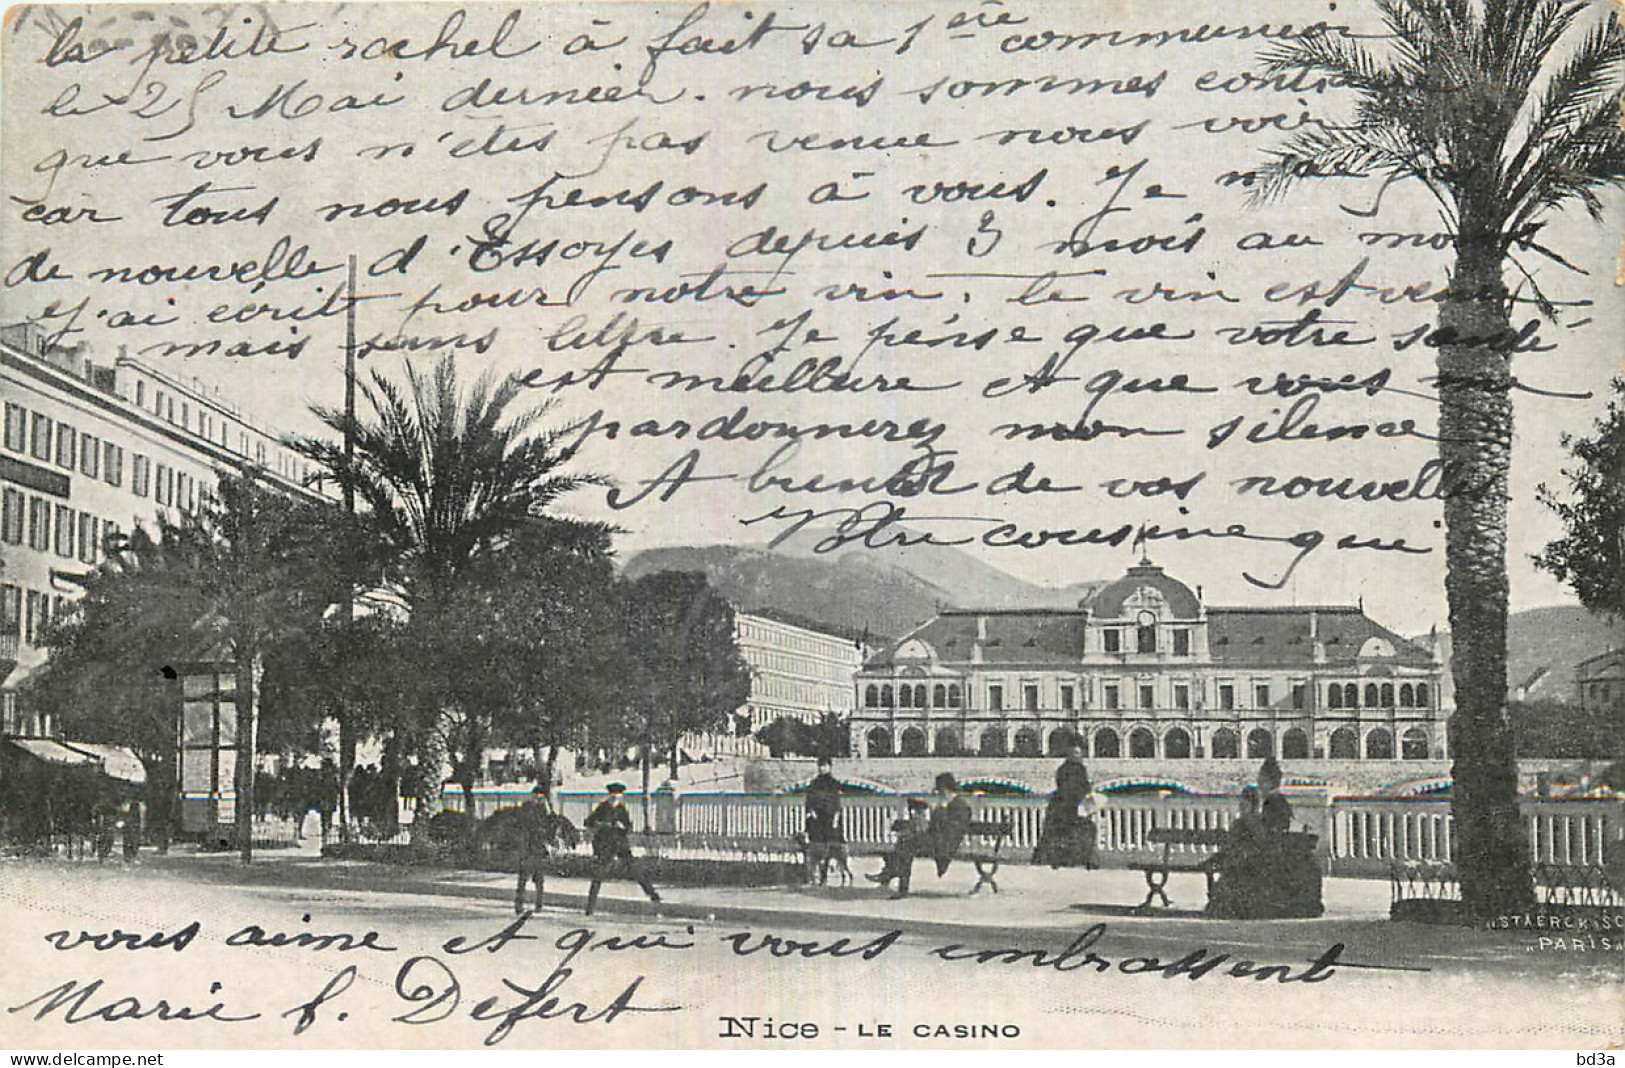 la petite rachel à fait sa 1ère communion
le 25 Mai dernier. nous sommes contra
que vous n'êtes pas venue nous voir
car tous nous pensons à vous. Je n'ai pas
de nouvelle d'Essoyes depuis 3 mois au moins
J'ai écrit pour notre vin, le vin est venu
mais sans lettre. Je pense que votre santé
est meilleure et que vous me
pardonnerez mon silence
A bientôt de vos nouvelles
Votre cousine qui
vous aime et qui vous embrassent
Marie f. Défert
Nice - LE CASINO
"STAERCK & SC
"PARIS"
bd3a